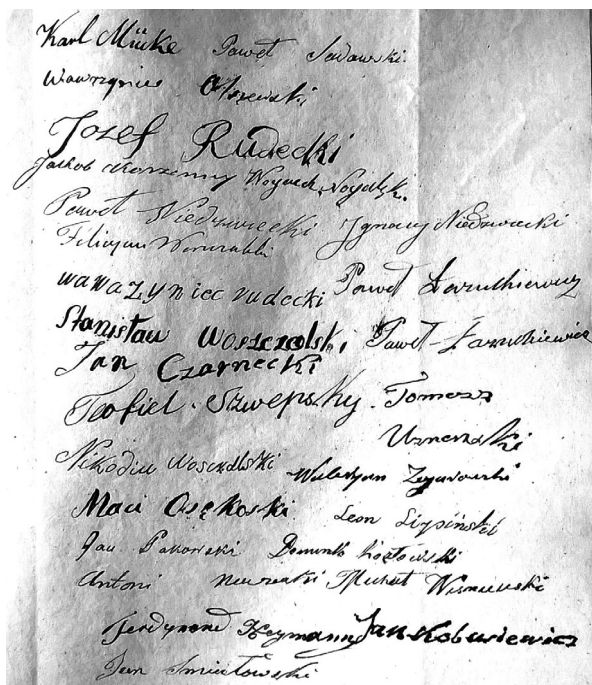 Karl Mücke Paweł Sadawski
Wawrzyniec Olszewski
Jozef Rudecki
Jakob Wojciech
Paweł Niedzwiecki Jgnacy Niedzwiecki
Filicyan
wawazyniec rudecki Paweł Łazutkiewicz
Stanisław Woszczalski Paweł Łazutkiewicz
Jan Czarnecki
Teofiel Szwepsky Tomesz
Nikodim Woszczalski Waleryan
Maci Osękoski Leon Lipiński
Jan Pakowski Dominik Kozłowski
Antoni Michał Wisniewski
Ferdynand Heymann Jan Kobusiewicz
Jan Smiałowski